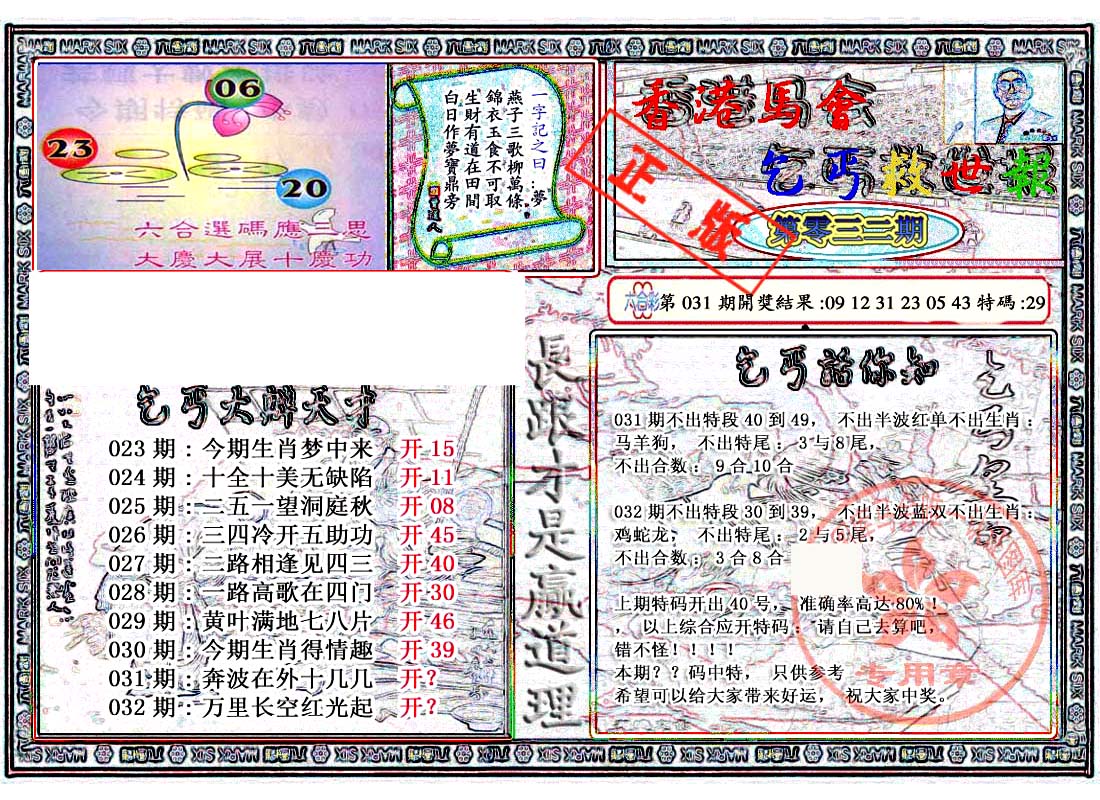 MARK SIX 六合彩
06
23
20
六合選碼應三思
大慶大展十慶功
一字記之曰：夢
燕子三歌柳萬條
錦衣玉食不可取
生財有道在田間
白日作夢寶鼎旁
香港馬會
乞丐救世報
正版
第零三二期
六合彩第 031 期開獎結果 :09 12 31 23 05 43 特碼 :29
长跟才是赢道理
023 期：今期生肖梦中来 开 15
024 期：十全十美无缺陷 开 11
025 期：三五一望洞庭秋 开 08
026 期：三四冷开五助功 开 45
027 期：三路相逢见四三 开 40
028 期：一路高歌在四门 开 30
029 期：黄叶满地七八片 开 46
030 期：今期生肖得情趣 开 39
031 期：奔波在外十几几 开？
032 期：万里长空红光起 开？
乞丐話你知
031 期不出特段 40 到 49， 不出半波红单不出生肖：
马羊狗， 不出特尾：3 与 8 尾，
不出合数：9 合 10 合
032 期不出特段 30 到 39， 不出半波蓝双不出生肖：
鸡蛇龙， 不出特尾：2 与 5 尾，
不出合数：3 合 8 合
上期特码开出 40 号， 准确率高达 80%！
， 以上综合应开特码： 请自己去算吧，
错不怪！！！！
本期？？码中特， 只供参考
希望可以给大家带来好运， 祝大家中奖。
专用章